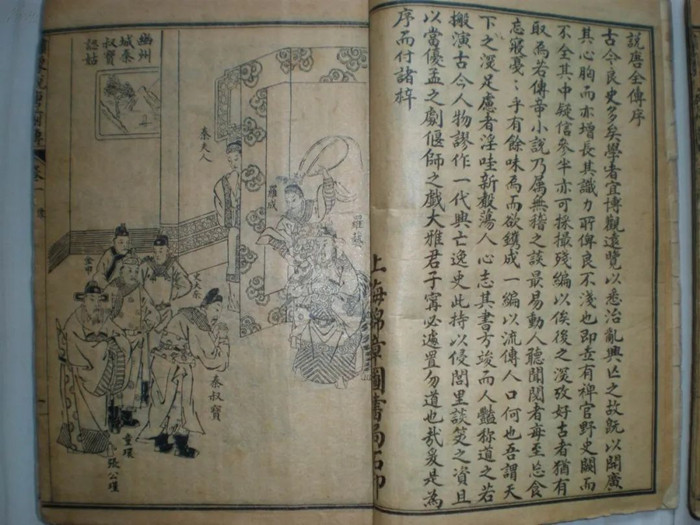 說唐全傳序
古今良史多矣學者宜博觀遠覽以悉治亂興亡之故既以開廣
其心胸而亦增長其識力所俾良不淺也即壺有裨官野史闕而
不全其中疑信參半亦可採撮殘編以俟後之深攷好古者猶有
取為若傳奇小說乃属無稽之談最易動人聽聞閱者每至忘食
忘寢戞戞乎有餘味焉而欲鐫成一編以流傳人口何也吾謂天
下之深足慮者淫哇新聲蕩人心志其書方竣而人豔称道之若
搬演古今人物謬作一代興亡逸史此持以侵閭里談笑之資且
以當優孟之劇偃師之戲大雅君子寧必遽置勿道也哉爰是為
序而付諸梓
上海錦章圖書局石印
幽州
城秦
叔寶
認姑
秦夫人
羅成
羅藝
金甲
史大奈
秦叔寶
童環
張公瑾